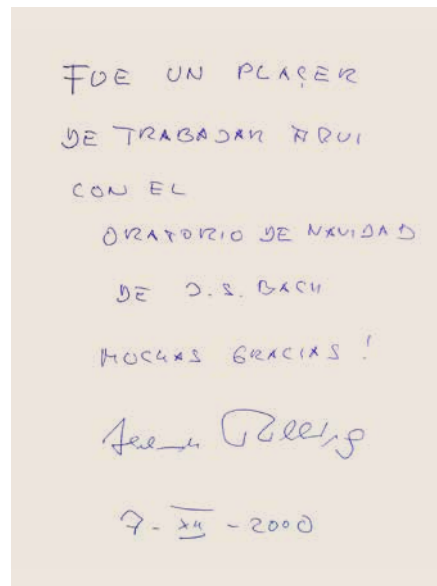 FUE UN PLACER
DE TRABAJAR AQUI
CON EL
ORATORIO DE NAVIDAD
DE J.S. BACH
MUCHAS GRACIAS!
Rilling
7-XII-2000